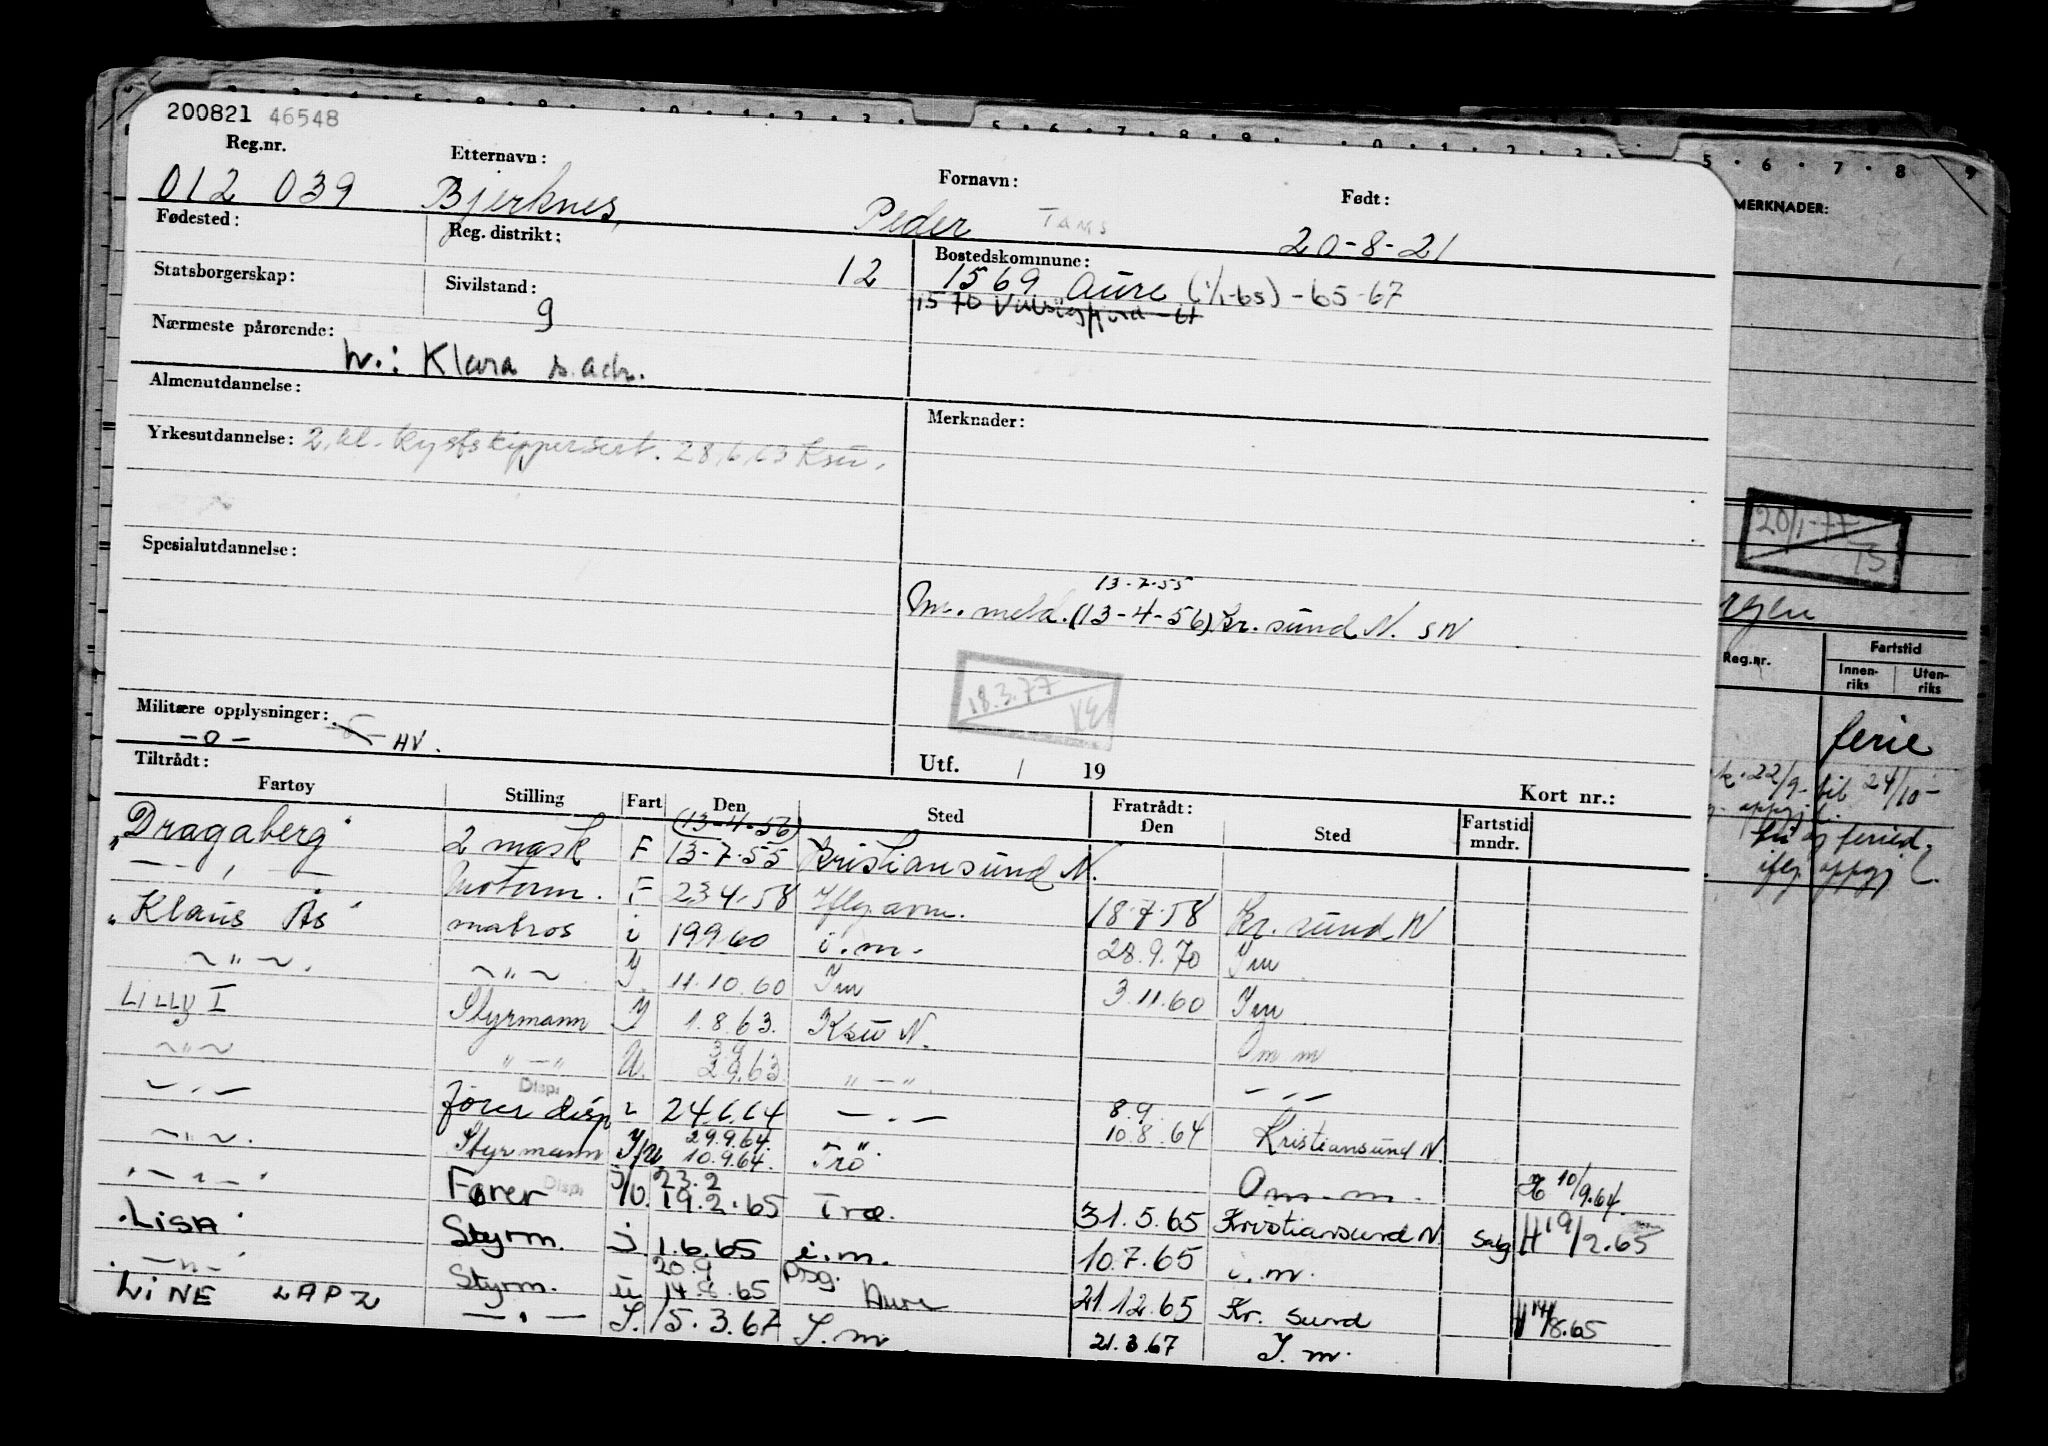 200821 46548
Reg.nr. Etternavn: Fornavn: Født:
012 039 Bjerknes, Peder TAMS 20-8-21
Fødested: Reg. distrikt: 12 Bostedskommune:
1569 Aure (1/1-65) -65-67
1570
Statsborgerskap: Sivilstand: g
Nærmeste pårørende:
h.: Klara s. adr.
Almenutdannelse: Merknader:
Yrkesutdannelse: 2. kl. kystskippersert. 28.6.63 Ksu.
Spesialutdannelse:
13-7-55
m. meld. (13-4-56) Kr. sund N. SN
18.3.77
Militære opplysninger:
-0- HV.
Tiltrådt: Utf. / 19 Kort nr.:
Fartøy Stilling Fart Den Sted Fratrådt: Den Sted Fartstid mndr.
(13-4-56)
"Dragaberg" 2 mask F 13-7-55 Kristiansund N.
— " — Motorm. F 23.4.58 Iflg. avm. 18.7.58 Kr. sund N
"Klaus Ås" matros i 19960 i.m. 28.9.70 Im
~ " ~ ~ " ~ Y. 11.10.60 Im 3.11.60 Im
LILLY I Styrmann Y 1.8.63. Ksu N. Om m
3.9
~ " ~ " — " U. 2.9.63 " — " — " —
Disp.
— " — fører disp u 24.6.64 — " — 8.9. 10.8.64 Kristiansund N.
29.9.64.
~ " ~ Styrmann Y/U 10.9.64. Trø Om m. H 10/9.64.
23.2
— " — Fører Disp. J/U. 19.2.65 Trø. 31.5.65 Kristiansund N. Salg H 19/2.65
"LISA" Styrm. j 1.6.65 i.m. 10.7.65 i.m.
20.9 psg.
— " — Styrm. u 14.8.65 Aure 21.12.65 Kr. sund H 14/8.65
LINE — " — I. 15.3.67 I.m 21.3.67 I.m.
5 6 7 8 9
MERKNADER:
20/1-77
TS
Reg.nr. Fartstid
Innenriks Utenriks
ferie
22/9- til 24/10-
iflg oppgj